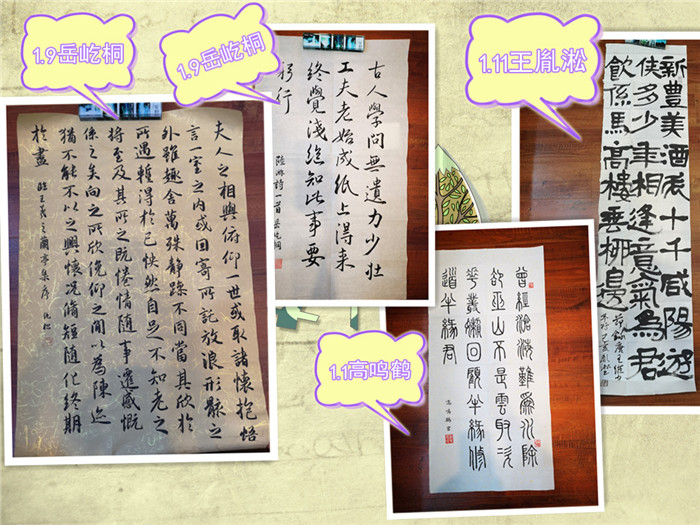 1.9岳屹桐
1.9岳屹桐
1.11王胤淞
1.1高鸣鹤
夫人之相與俯仰一世或取諸懷抱悟
言一室之內或因寄所託放浪形骸之
外雖趣舍萬殊靜躁不同當其欣於
所遇輒得於己快然自足不知老之
將至及其所之既惓情隨事遷感慨
係之矣向之所欣俛仰之間以為陳迹
猶不能不以之興懷况脩短隨化終期
於盡 臨王羲之蘭亭集序 屹桐
古人學問無遺力少壯
工夫老始成紙上得来
終覺淺絶知此事要
躬行 陸游詩一首 岳屹桐
新豊美酒斗十千咸陽遊
侠多少年相逢意氣為君
飲係馬高樓垂柳邊
曾經滄海難為水除
卻巫山不是雲取次
花叢嬾回顧半緣修
道半緣君
高鳴鶴書